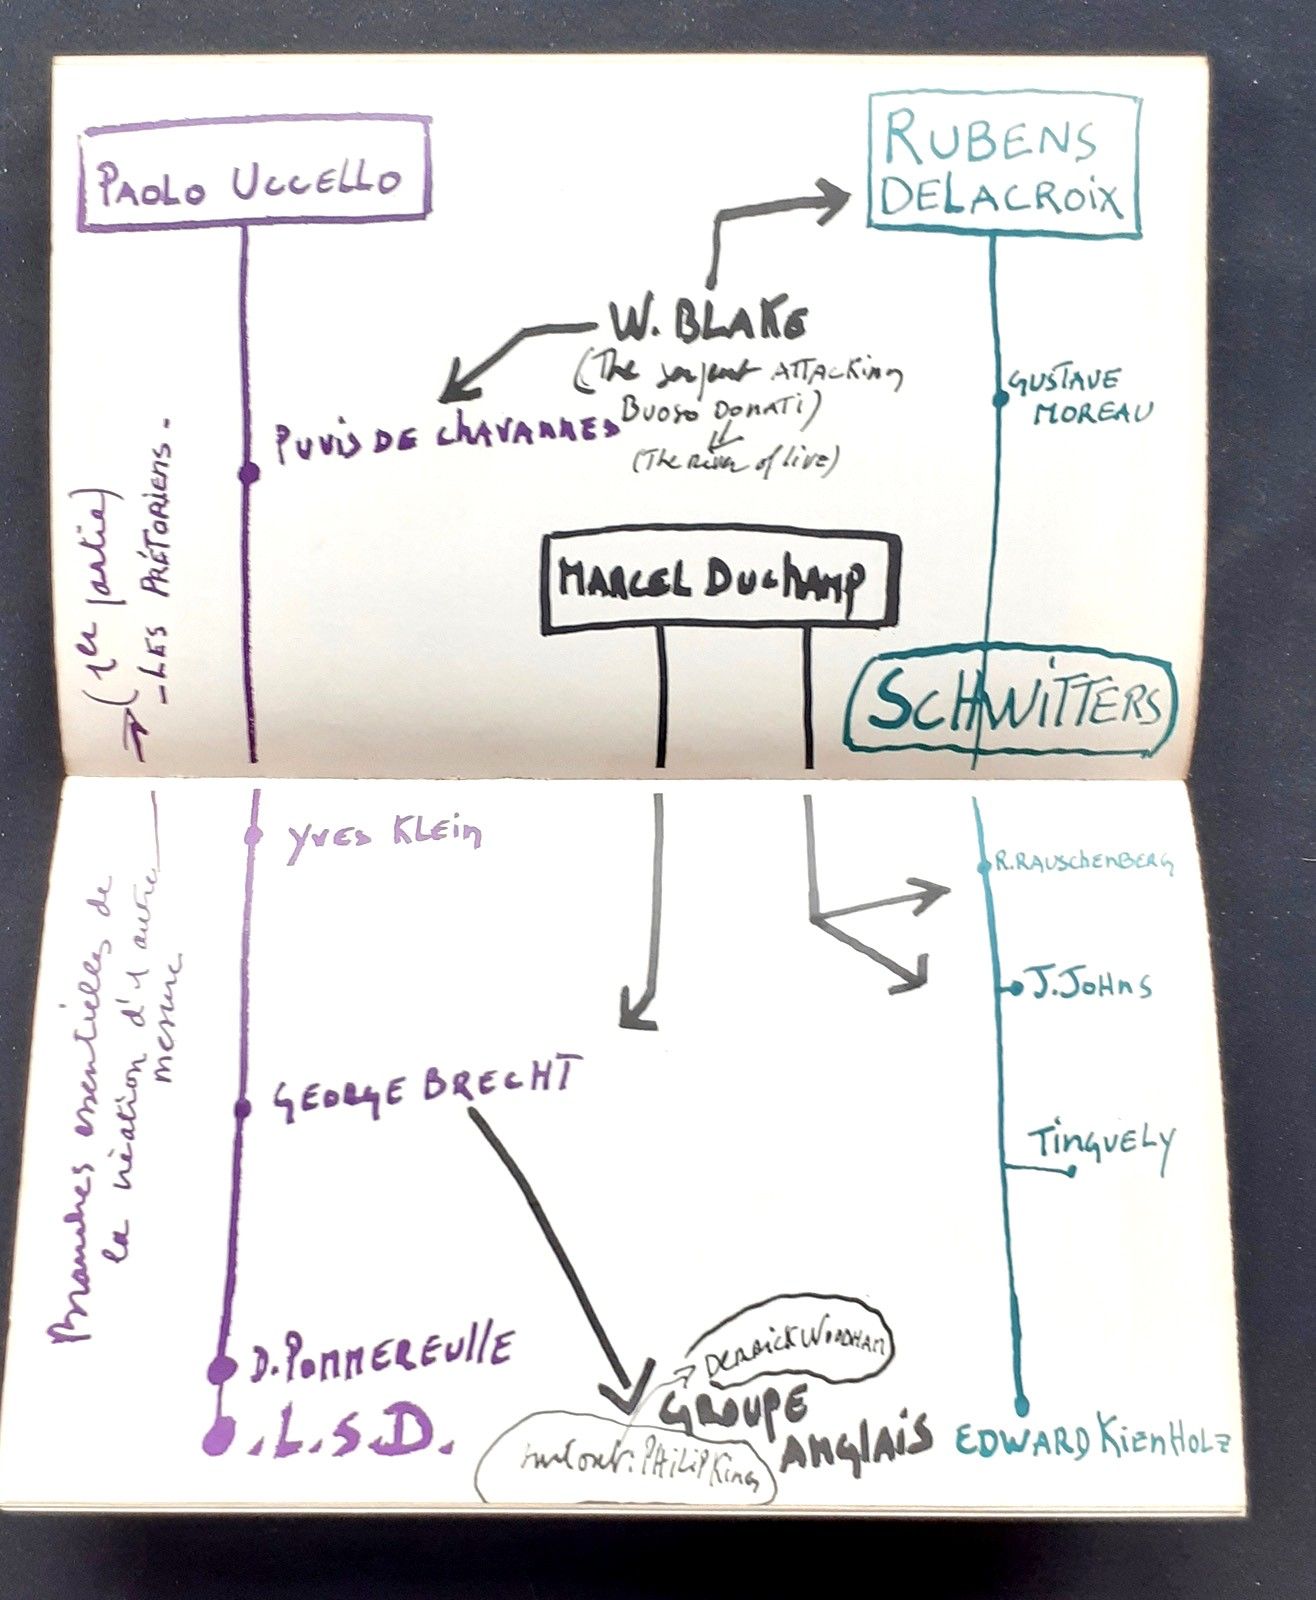 PAOLO UCCELLO
RUBENS
DELACROIX
W. BLAKE
(The serpent ATTACKing
BUOSO DONATI)
(The river of live)
GUSTAVE
MOREAU
PUVIS DE CHAVANNES
(1er partie)
-LES PRÉTORIENS-
MARCEL DUCHAMP
SCHWITTERS
YVES KLEIN
R. RAUSCHENBERG
J. JOHNS
Branches essentielles de
la création d'1 autre
mesure
GEORGE BRECHT
TINGUELY
D. POMMEREULLE
.L.S.D.
DERRICK WOODHAM
GROUPE
ANGLAIS
surtout: PHILIP King
EDWARD KIENHOLZ